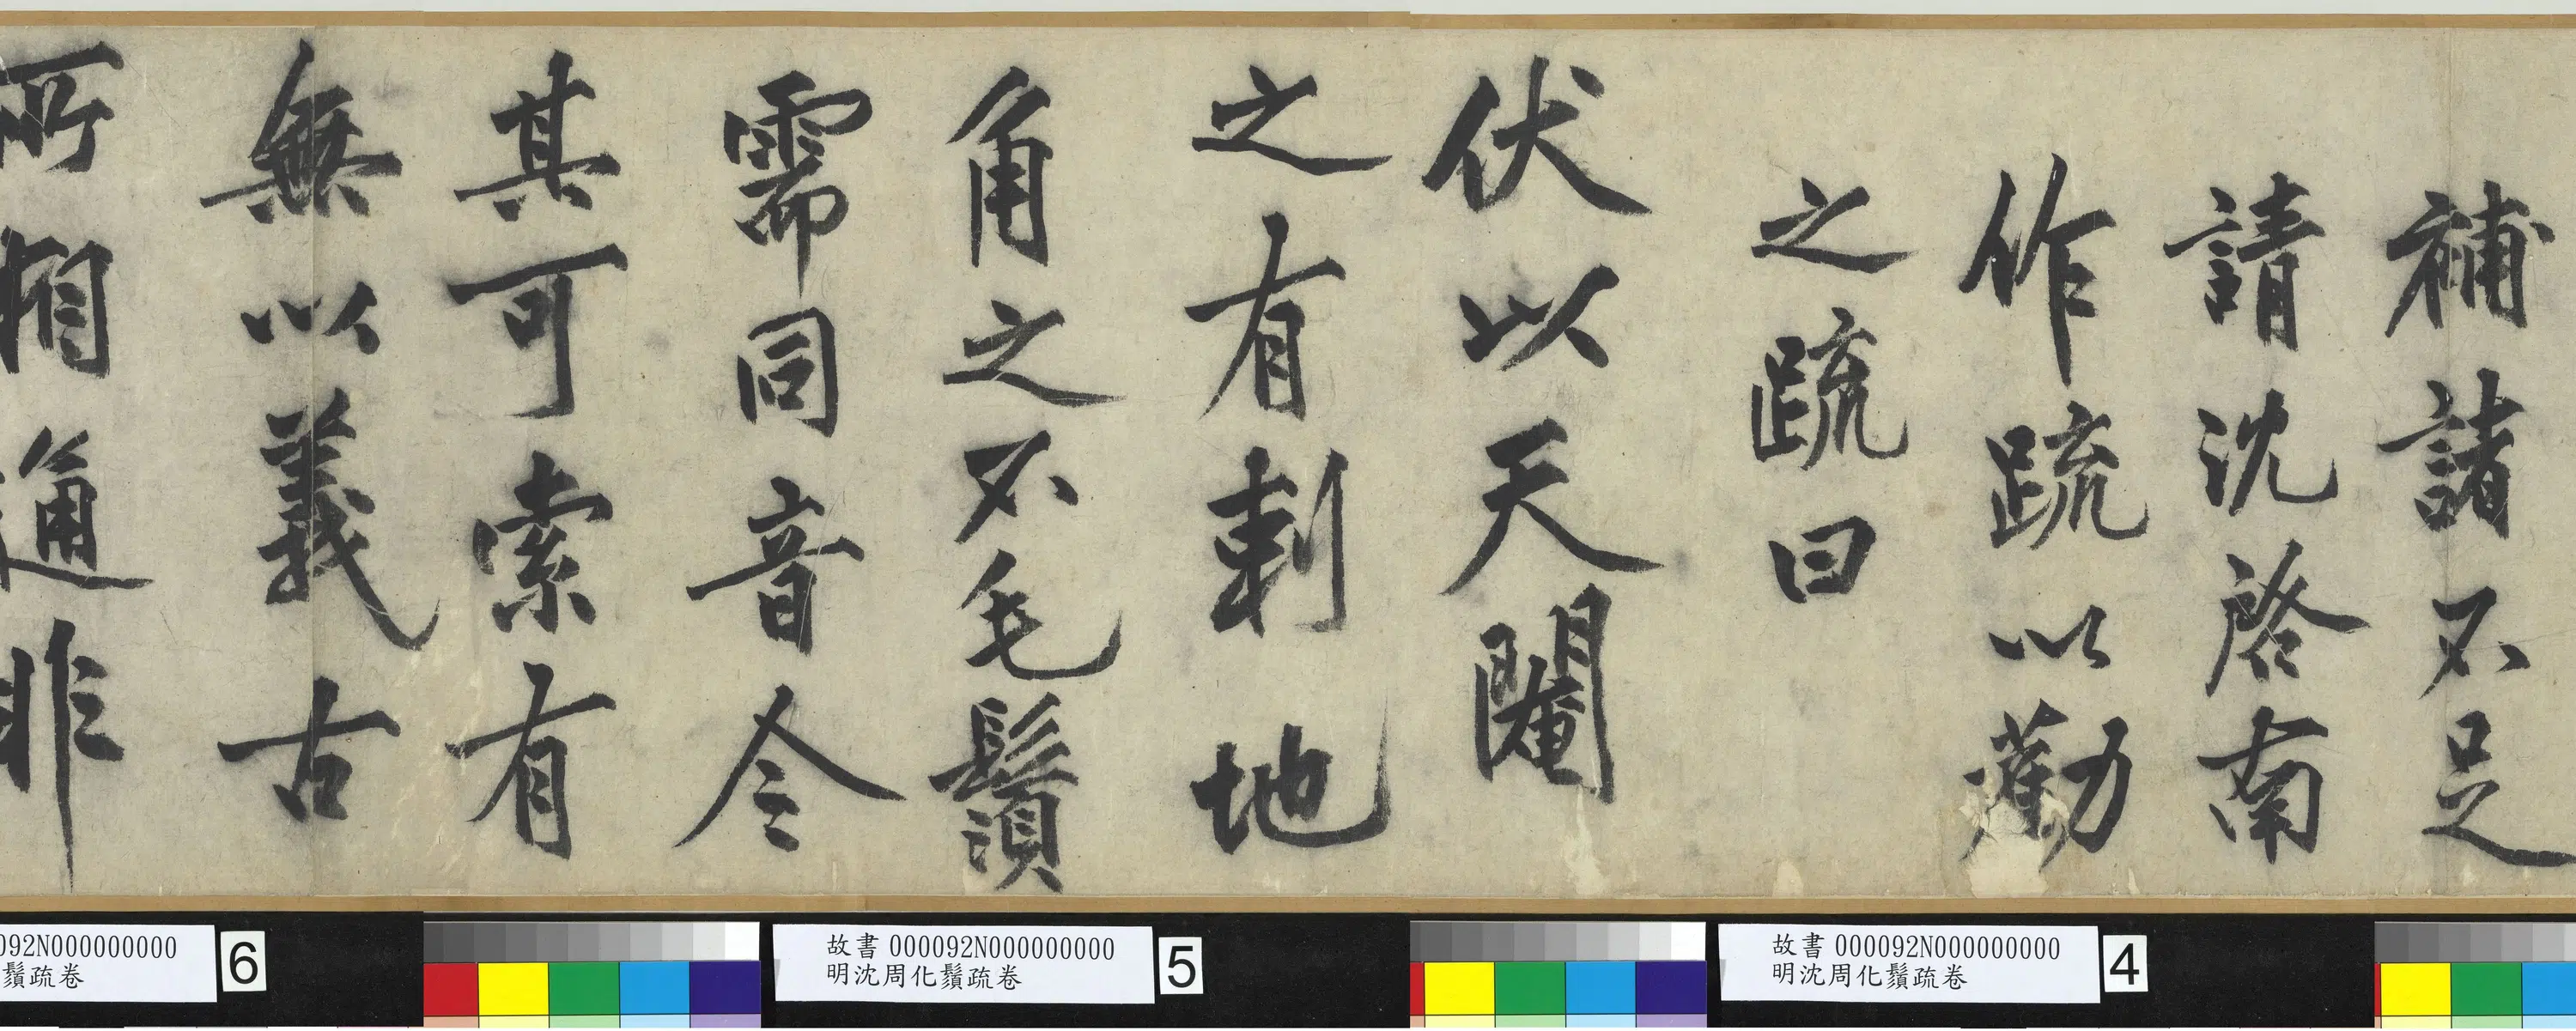 補諸不足
請沈啓南
作疏以勸
之疏曰
伏以天閹
之有刺地
角之不毛鬚
需同音今
其可索有
無以義古
所相通非
092N000000000
鬚疏卷
6
故書 000092N000000000
明沈周化鬚疏卷
5
故書 000092N000000000
明沈周化鬚疏卷
4